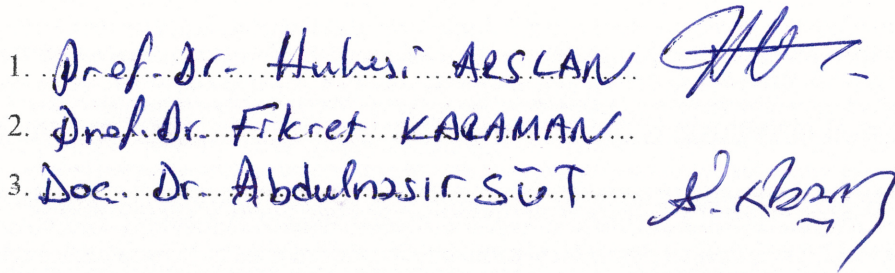 1. Prof. Dr. Hulusi ARSLAN
2. Prof. Dr. Fikret KARAMAN
3. Doc. Dr. Abdulnasir SÜT